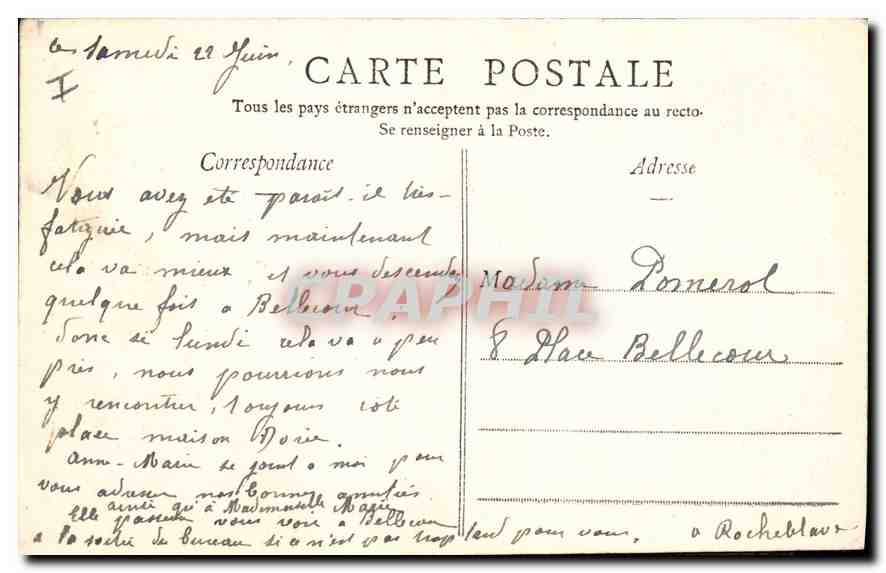 ce Samedi 22 Juin,
I
CARTE POSTALE
Tous les pays étrangers n'acceptent pas la correspondance au recto.
Se renseigner à la Poste.
Correspondance
Vous avez été paraît-il très
fatiguée, mais maintenant
cela va mieux et vous descendez
quelque fois à Bellecour.
donc si lundi cela va à peu
près, nous pourrions nous
y rencontrer, toujours côté
place maison Dorée.
Anne-Marie se joint à moi pour
vous adresser nos bonnes amitiés
ainsi qu'à Mademoiselle Marie
Elle passera vous voir à Bellecour
à la sortie du bureau si ce n'est pas trop tard pour vous. A Rocheblave
Adresse
Madame Pomerol
8 Place Bellecour
CPAPHIL